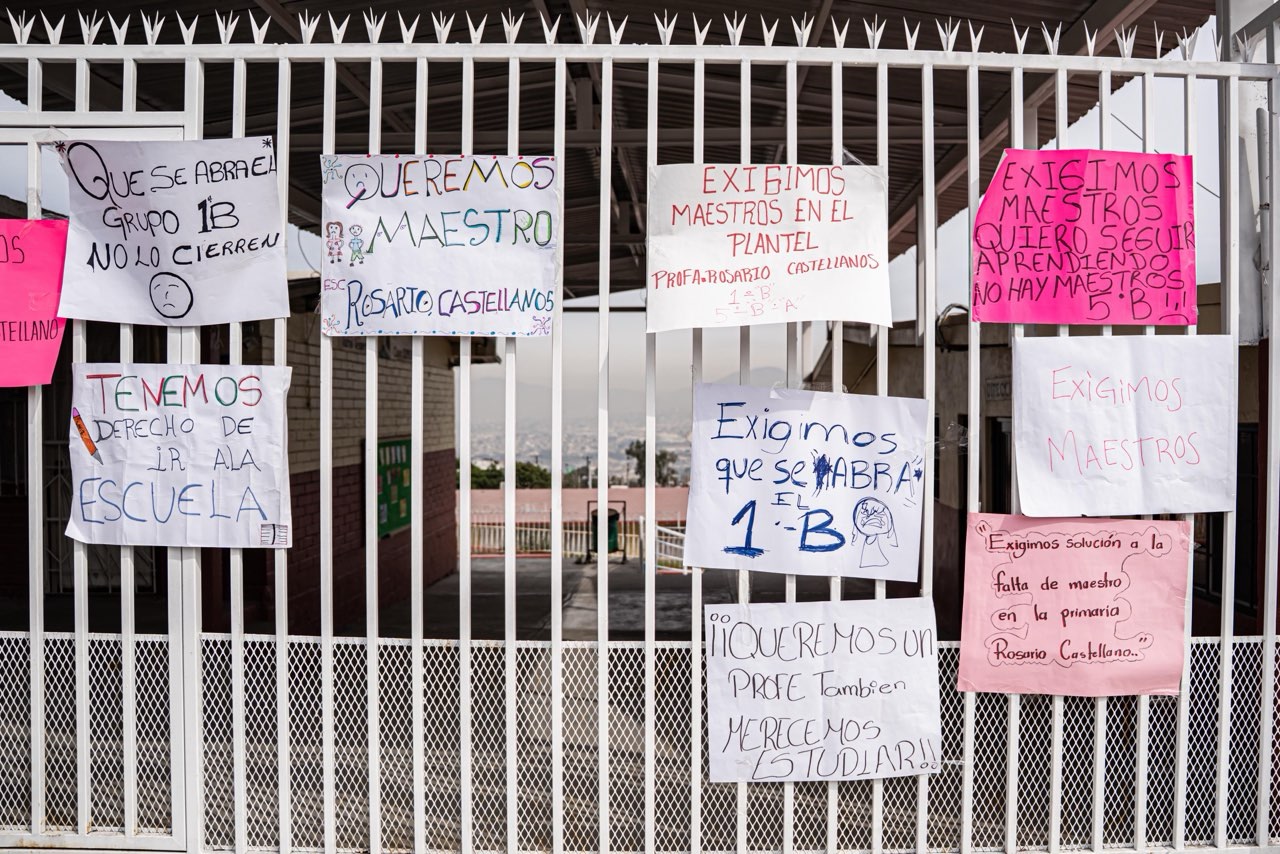 OS
TELLANO
QUE SE ABRA EL
GRUPO 1B
NO LO CIERREN
TENEMOS
DERECHO DE
IR ALA
ESCUELA
QUEREMOS
MAESTRO
ESC
ROSARIO CASTELLANOS
EXIGIMOS
MAESTROS EN EL
PLANTEL
PROFA. ROSARIO CASTELLANOS
1 = "B"
5 = "B" - "A"
Exigimos
que se ABRA
EL
1 -- B
¡¡QUEREMOS UN
PROFE Tambien
MERECEMOS
ESTUDIAR!!
EXIGIMOS
MAESTROS
QUIERO SEGUIR
APRENDIENDO
NO HAY MAESTROS
5°B !!!
EXIGIMOS
MAESTROS
"Exigimos solución a la
falta de maestro
en la primaria
Rosario Castellano.."